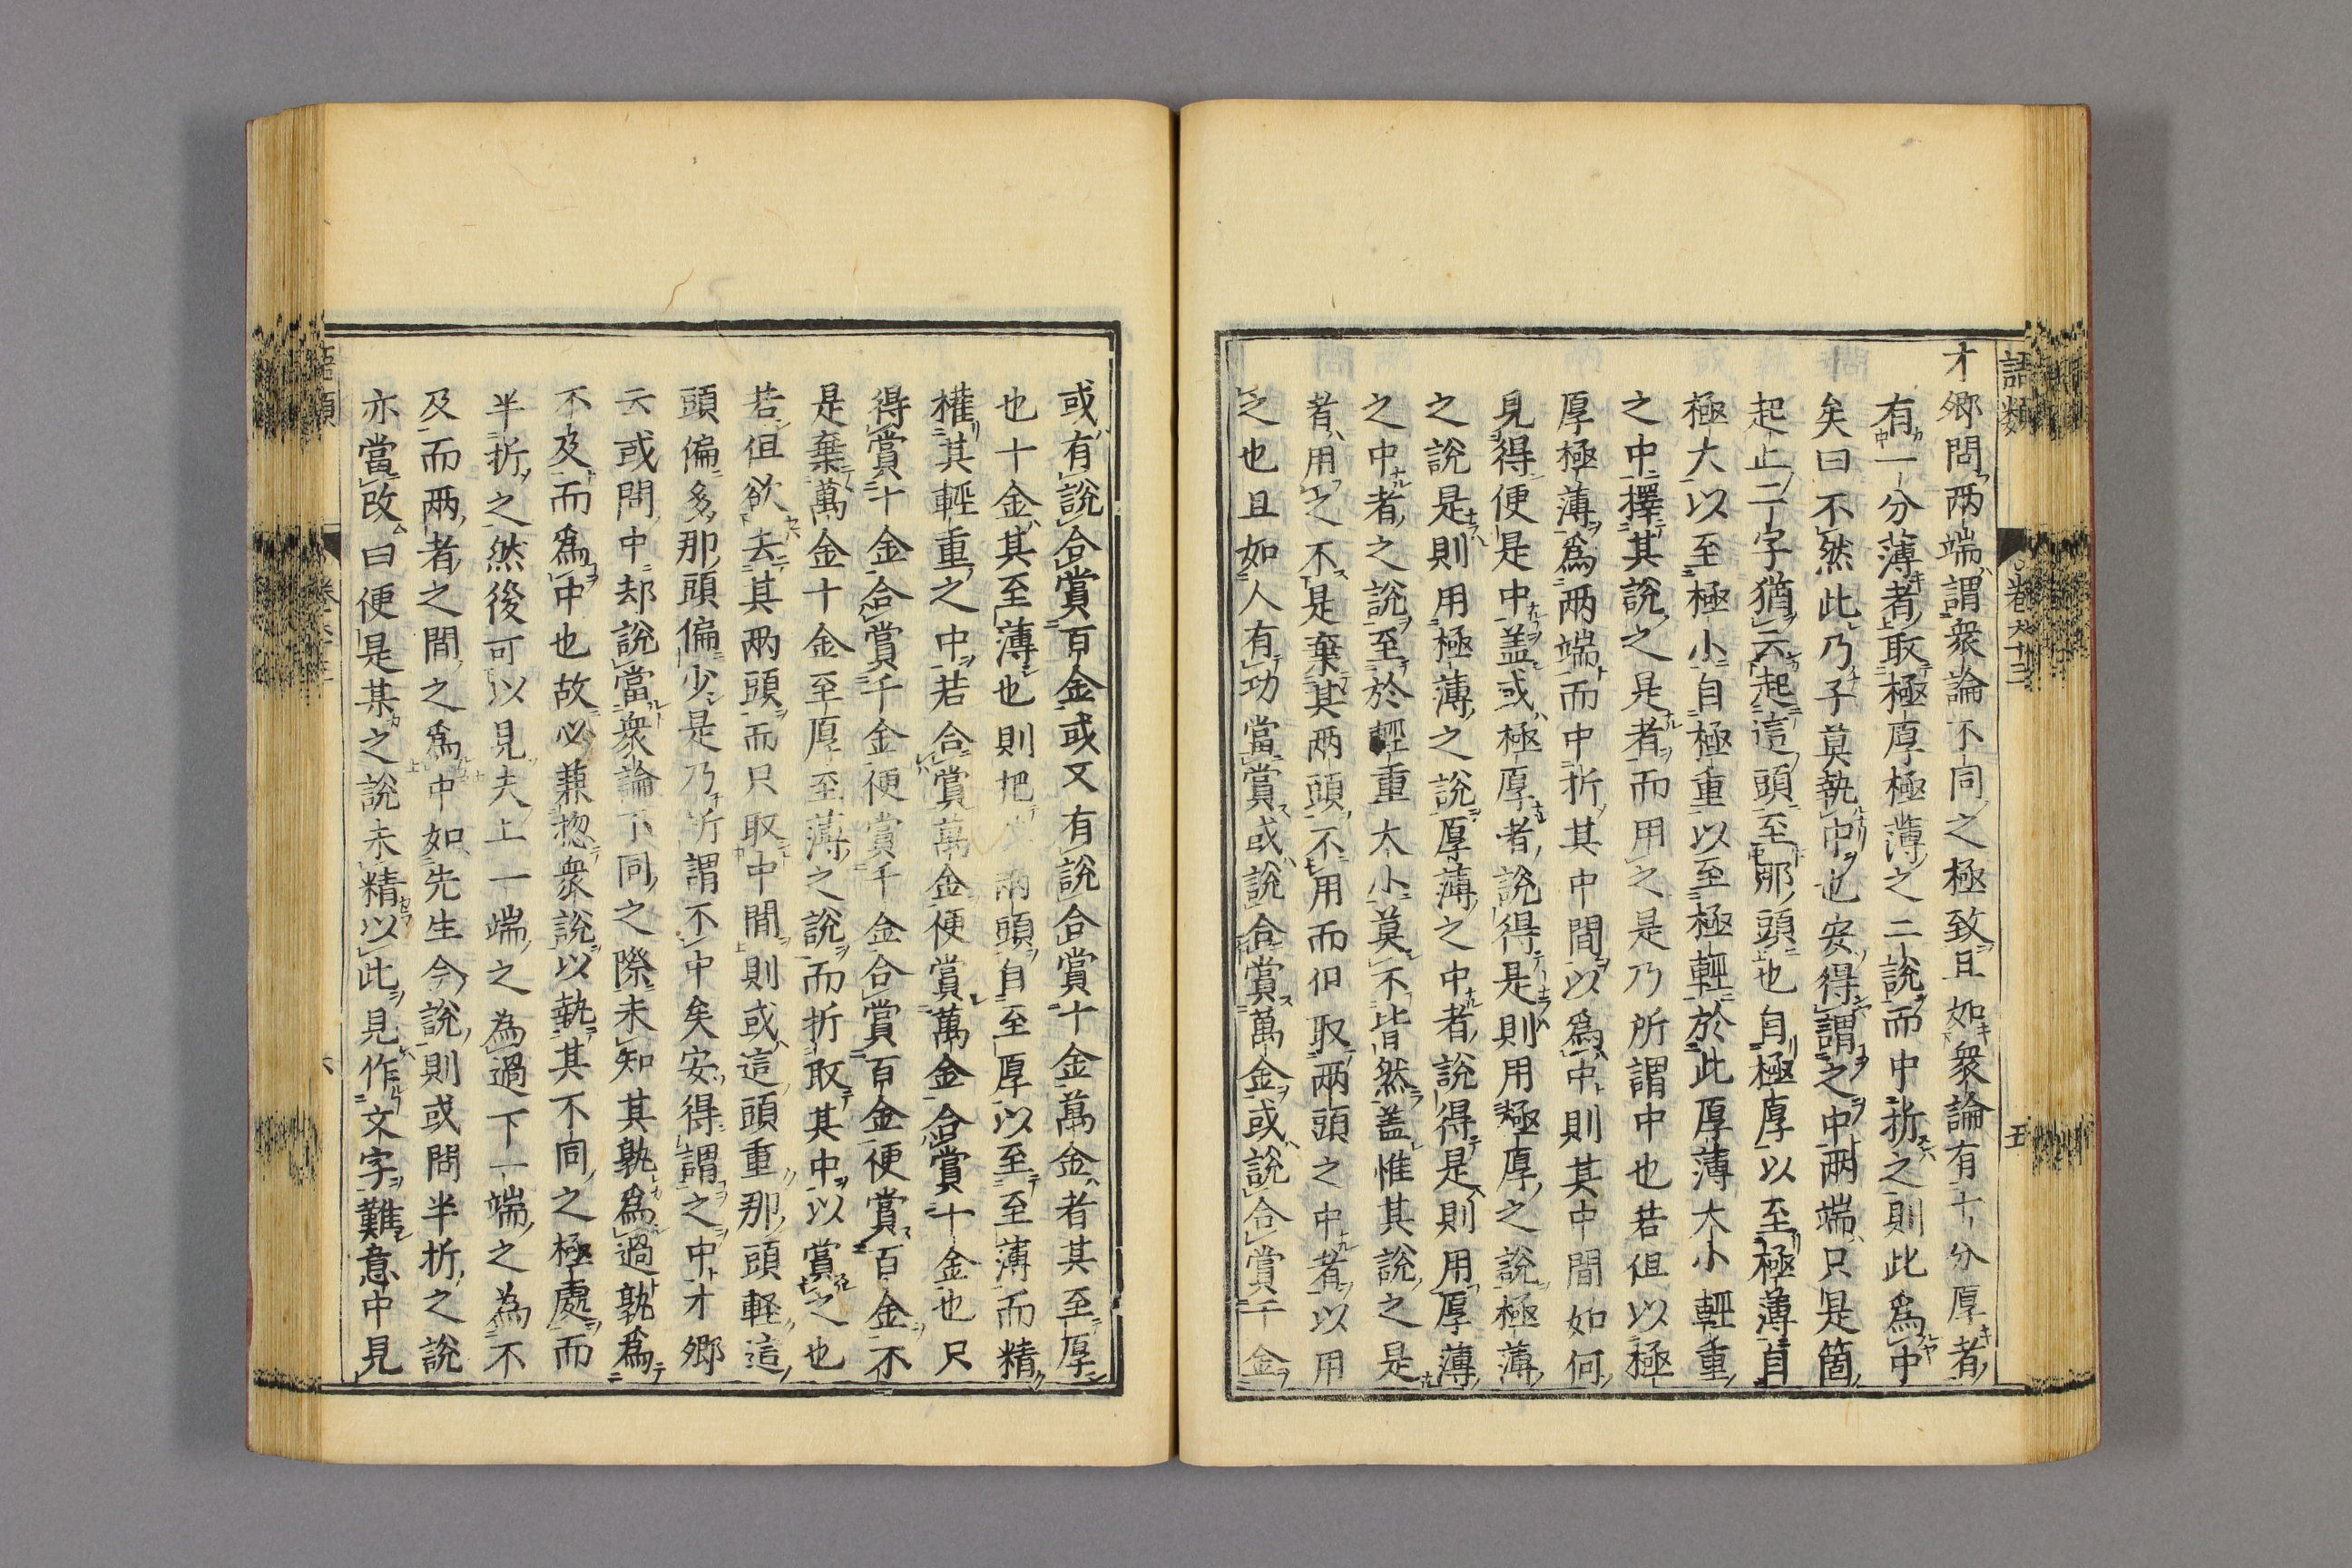 語類
卷六十三
五
才卿問兩端謂衆論不同之極致且如衆論有十分厚者
有一分薄者取極厚極薄之二說而中折之則此爲中
矣曰不然此乃子莫執中也安得謂之中兩端只是箇
起止二字猶云起這頭至那頭也自極厚以至極薄自
極大以至極小自極重以至極輕於此厚薄大小輕重
之中擇其說之是者而用之是乃所謂中也若但以極
厚極薄爲兩端而中折其中間以爲中則其中間如何
見得便是中蓋或極厚者說得是則用極厚之說極薄
之說是則用極薄之說厚薄之中者說得是則用厚薄
之中者之說至於輕重大小莫不皆然蓋惟其說之是
者用之不是棄其兩頭不用而但取兩頭之中者以用
之也且如人有功當賞或說合賞萬金或說合賞千金
或有說合賞百金或又有說合賞十金萬金者其至厚
也十金其至薄也則把兩頭自至厚以至至薄而精
權其輕重之中若合賞萬金便賞萬金合賞十金也只
得賞十金合賞千金便賞千金合賞百金便賞百金不
是棄萬金十金至厚至薄之說而折取其中以賞之也
若但欲去其兩頭而只取中間則或這頭重那頭輕這
頭偏多那頭偏少是乃所謂不中矣安得謂之中才卿
云或問中却說當衆論不同之際未知其孰爲過孰爲
不及而爲中也故必兼惣衆說以執其不同之極處而
半折之然後可以見夫上一端之為過下一端之為不
及而兩者之間之爲中如先生今說則或問半折之說
亦當改曰便是某之說未精以此見作文字難意中見
語類
六